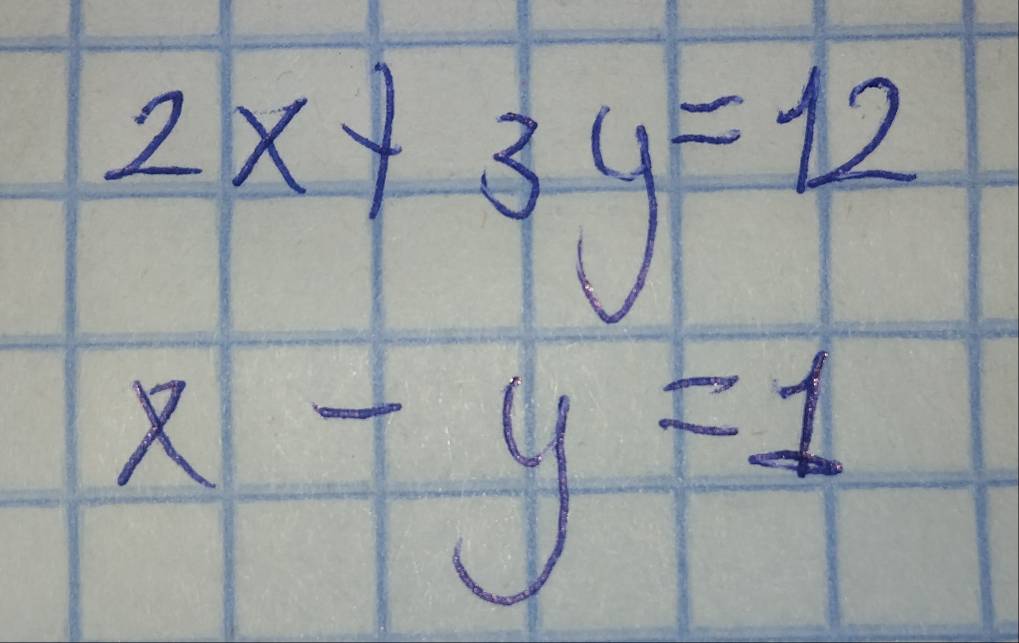 2x + 3y = 12
x - y = 1